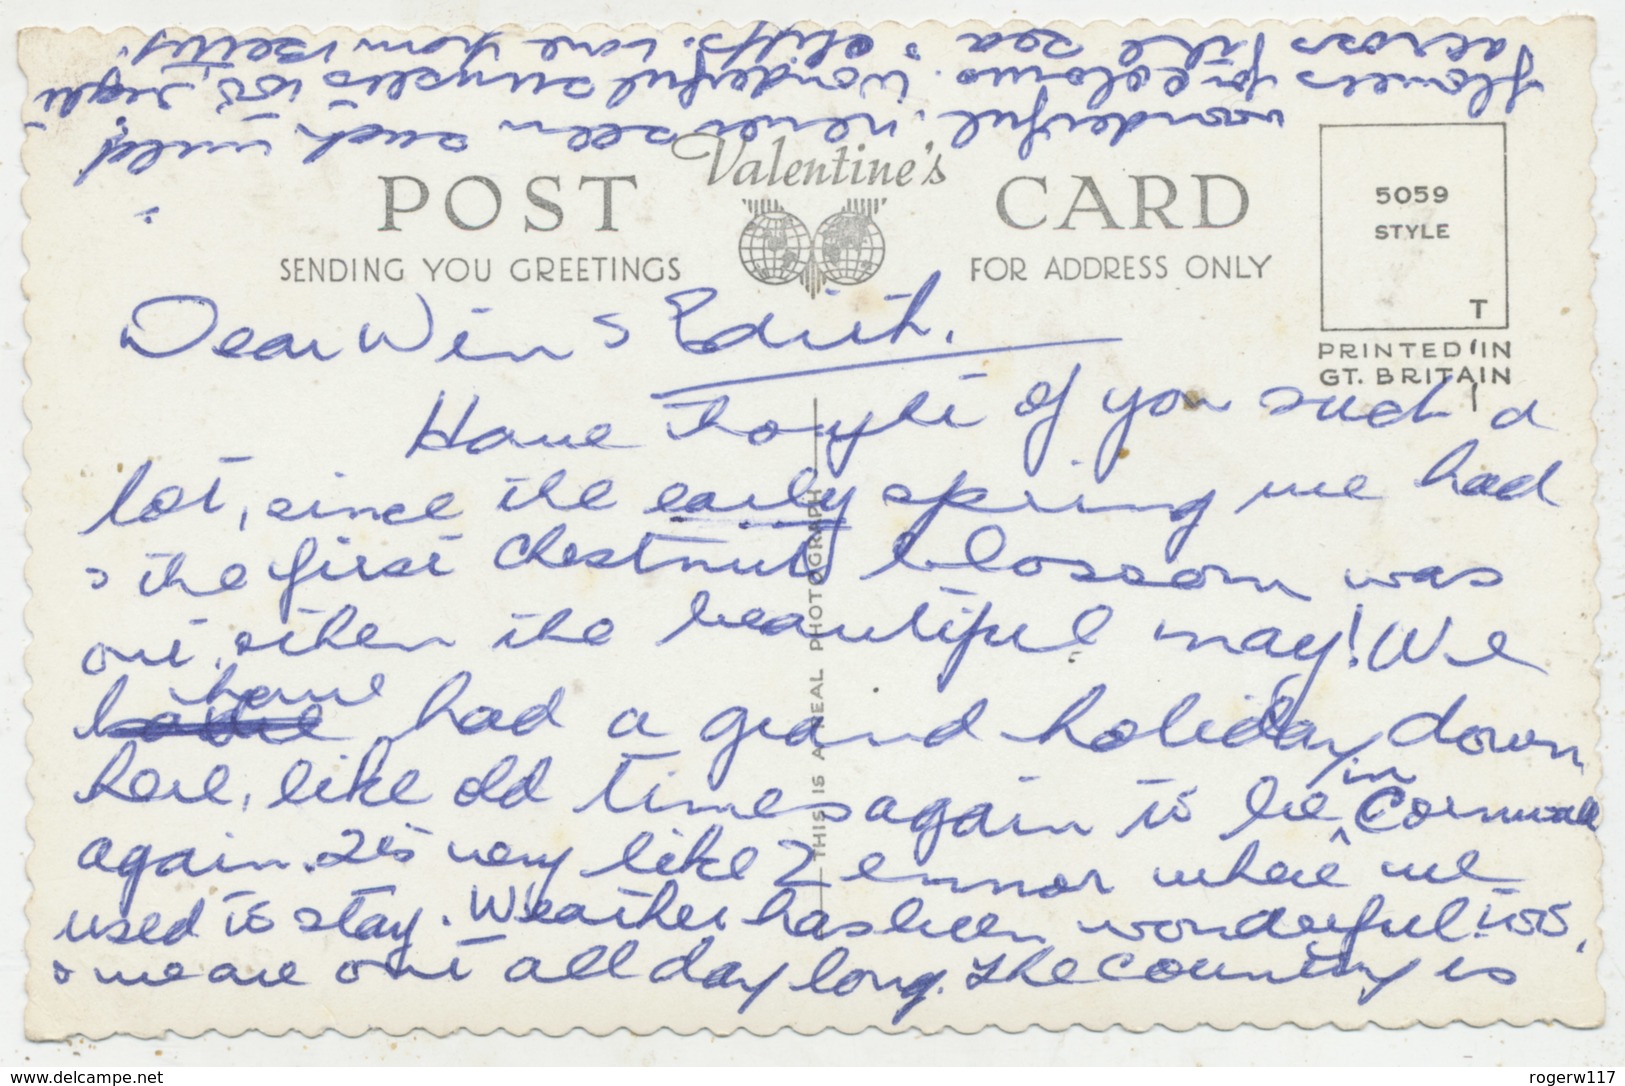 Valentine's
POST CARD
SENDING YOU GREETINGS
FOR ADDRESS ONLY
5059
STYLE
T
PRINTED IN
GT. BRITAIN
THIS IS A REAL PHOTOGRAPH
Dear Win & Edith.
Have thought of you such a
lot, since the early spring we had
& the first chestnut blossom was
out, then the beautiful may! We
have had a grand holiday down
here, like old times again to be in Cornwall
again. It's very like Zennor where we
used to stay. Weather has been wonderful too,
& we are out all day long. The country is
wonderful, never seen such wild
flowers for colours. Wonderful sunsets too right
across the sea & cliffs. Love from Betty.
www.delcampe.net
rogerw117